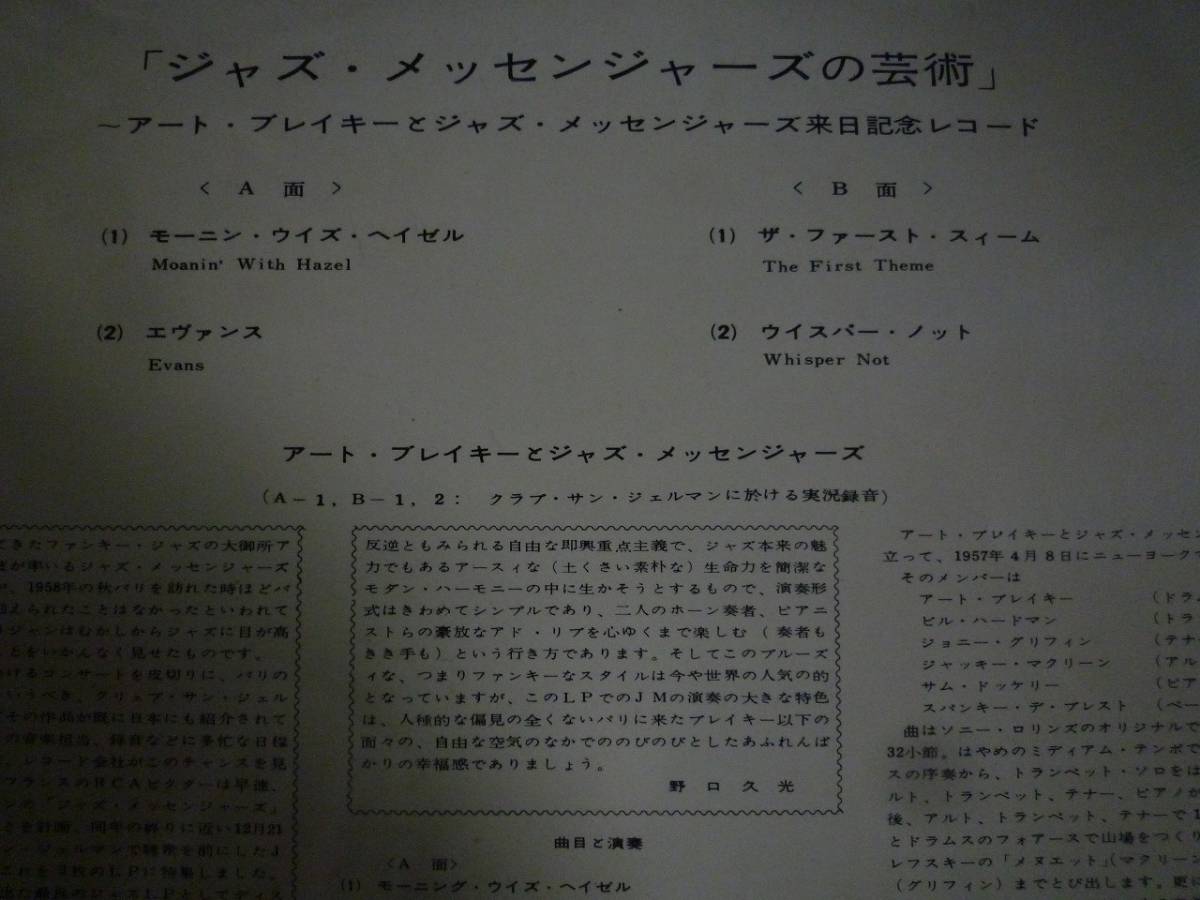 「ジャズ・メッセンジャーズの芸術」
～アート・ブレイキーとジャズ・メッセンジャーズ来日記念レコード
〈 A 面 〉
(1) モーニン・ウイズ・ヘイゼル
Moanin' With Hazel
(2) エヴァンス
Evans
〈 B 面 〉
(1) ザ・ファースト・スィーム
The First Theme
(2) ウイスパー・ノット
Whisper Not
アート・ブレイキーとジャズ・メッセンジャーズ
(A－1, B－1, 2： クラブ・サン・ジェルマンに於ける実況録音)
てきたファンキー・ジャズの大御所ア
が率いるジャズ・メッセンジャーズ
、1958年の秋パリを訪れた時ほどパ
迎えられたことはなかったといわれて
リジャンはむかしからジャズに目が高
ことをいかんなく見せたものです。
けるコンサートを皮切りに、パリの
いうべき、クリュブ・サン・ジェル
その作品が既に日本にも紹介されて
の音楽担当、録音などに多忙な日程
、レコード会社がこのチャンスを見
フランスのRCAビクターは早速、
ンの「ジャズ・メッセンジャーズ」
を計画、同年の終りに近い12月21
ン・ジェルマンで聴衆を前にしたJ
これを3枚のLPに特集しました。
反逆ともみられる自由な即興重点主義で、ジャズ本来の魅
力でもあるアースィな（土くさい素朴な）生命力を簡潔な
モダン・ハーモニーの中に生かそうとするもので、演奏形
式はきわめてシンプルであり、二人のホーン奏者、ピアニ
ストらの豪放なアド・リブを心ゆくまで楽しむ（奏者も
きき手も）という行き方であります。そしてこのブルーズ
ィな、つまりファンキーなスタイルは今や世界の人気の的
となっていますが、このLPでのJMの演奏の大きな特色
は、人種的な偏見の全くないパリに来たブレイキー以下の
面々の、自由な空気のなかでののびのびとしたあふれんば
かりの幸福感でありましょう。
野口久光
曲目と演奏
〈A 面〉
(1) モーニング・ウイズ・ヘイゼル
アート・ブレイキーとジャズ・メッセン
立って、1957年4月8日にニューヨーク
そのメンバーは
アート・ブレイキー （ドラム
ビル・ハードマン （トラ
ジョニー・グリフィン （テナ
ジャッキー・マクリーン （アル
サム・ドッケリー （ピア
スパンキー・デ・ブレスト （ベー
曲はソニー・ロリンズのオリジナルで
32小節。はやめのミディアム・テンポで
スの序奏から、トランペット・ソロをは
ルト、トランペット、テナー、ピアノが
後、アルト、トランペット、テナーで1
とドラムスのフォアースで山場をつくり
レフスキーの「メヌエット」（マクリーン
（グリフィン）までとび出します。更に